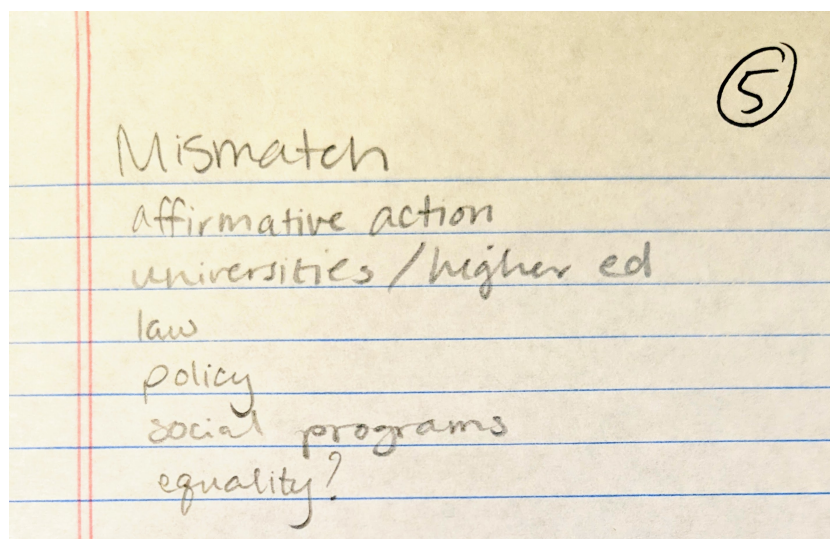 5
Mismatch
affirmative action
universities/higher ed
law
policy
social programs
equality?